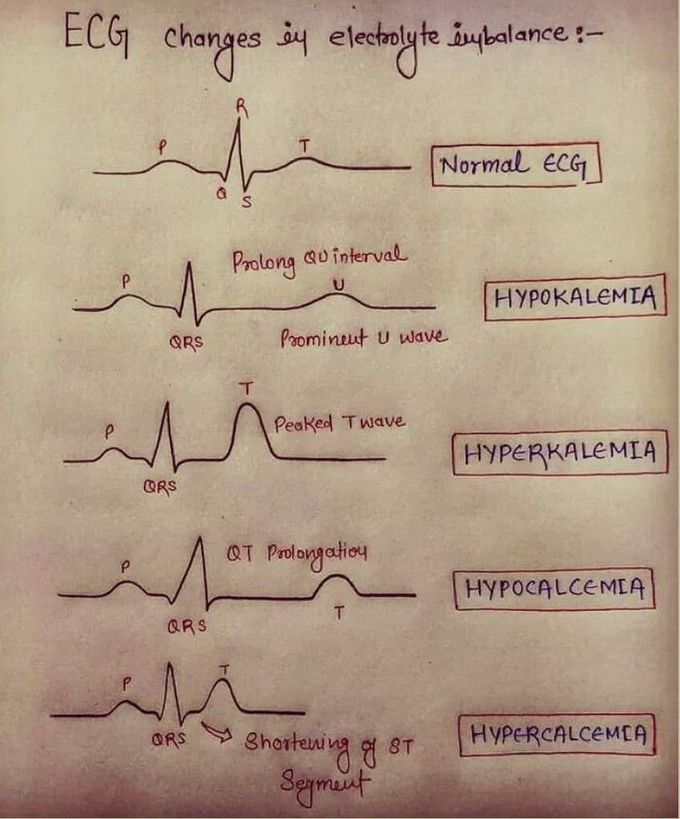 ECG changes in electrolyte imbalance :-
R
P
T
Normal ECG
Q
S
Prolong QU interval
P
U
HYPOKALEMIA
QRS
Prominent U wave
T
Peaked T wave
P
HYPERKALEMIA
QRS
QT Prolongation
P
HYPOCALCEMIA
T
QRS
T
P
QRS
Shortening of ST
HYPERCALCEMIA
Segment